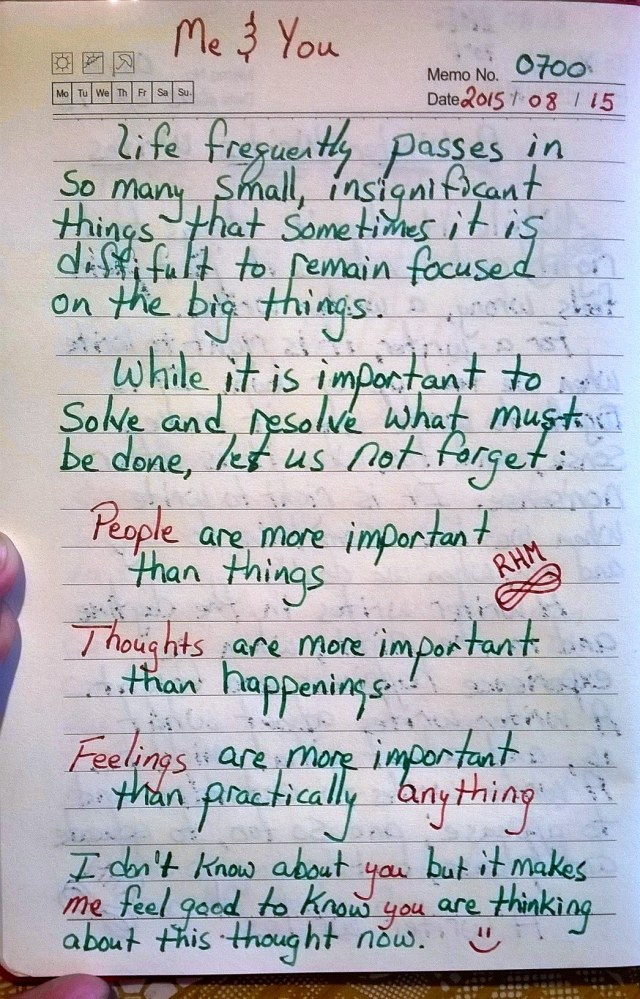 Me & You
Memo No. 0700
Mo Tu We Th Fr Sa Su
Date 2015 / 08 / 15
Life frequently passes in
so many small, insignificant
things that sometimes it is
difficult to remain focused
on the big things.
While it is important to
solve and resolve what must
be done, let us not forget:
People are more important
than things
RHM
Thoughts are more important
than happenings
Feelings are more important
than practically anything
I don't know about you but it makes
me feel good to know you are thinking
about this thought now.